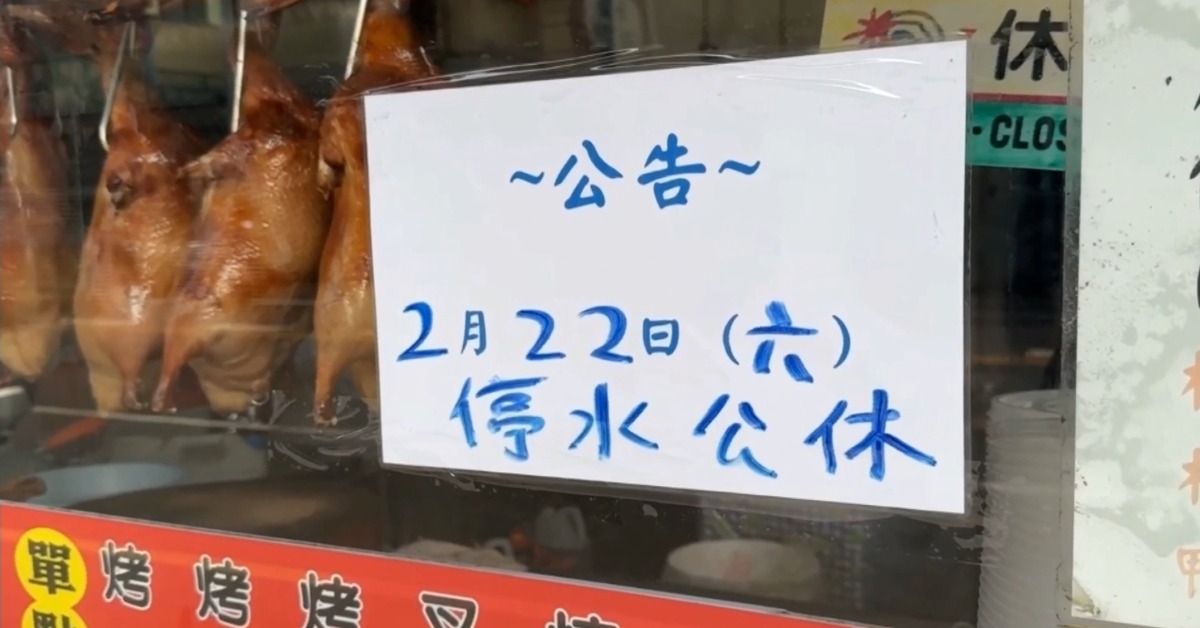 ~公告~
2月22日(六)
停水公休
休
-CLOS
單點
烤 烤 烤 叉 燒